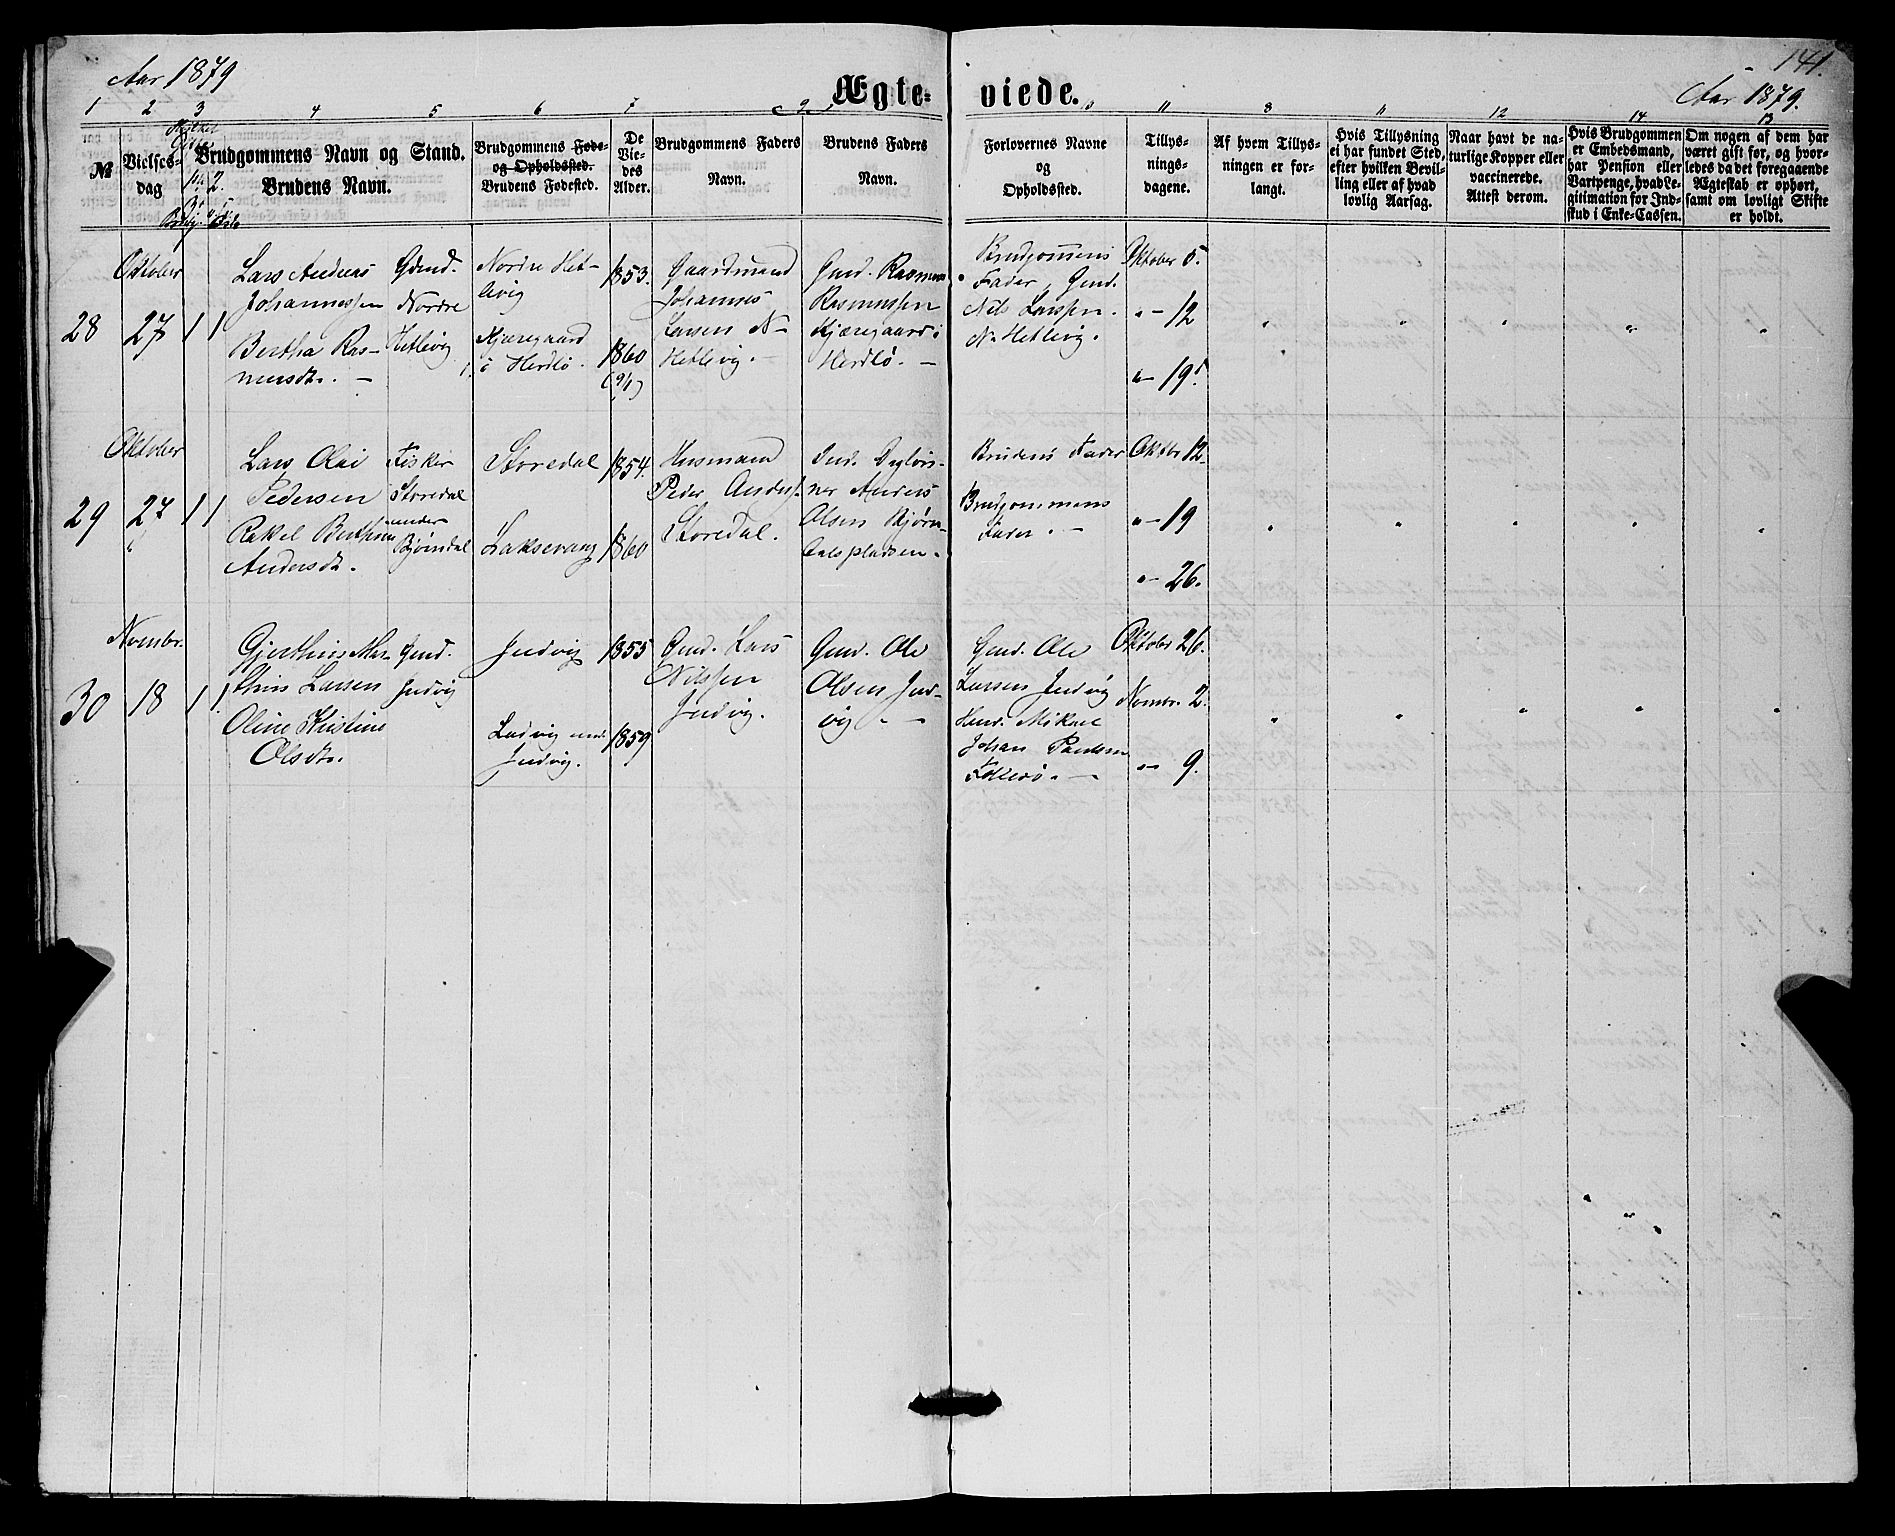 Aar 1879
141.
Ægteviede.
Aar 1879.
1 2 3 4 5 6 7 9 10 11 8 11 12 14 13
№
Vielses-
dag
Brudgommens Navn og Stand.
Brudens Navn.
Brudgommens Føde-
og Opholdssted.
Brudens Fødested.
De
Vie-
des
Alder.
Brudgommens Faders
Navn.
Brudens Faders
Navn.
Forlovernes Navne
og
Opholdssted.
Tillys-
nings-
dagene.
Af hvem Tillys-
ningen er for-
langt.
Hvis Tillysning
ei har fundet Sted,
efter hvilken Bevil-
ling eller af hvad
lovlig Aarsag.
Naar havt de na-
turlige Kopper eller
vaccinerede.
Attest derom.
Hvis Brudgommen
er Embedsmand,
har Pension eller
Vartpenge, hvad Le-
gitimation for Ind-
skud i Enke-Cassen.
Om nogen af dem har
været gift før, og hvor-
ledes da det foregaaende
Ægteskab er ophørt,
samt om lovligt Skifte
er holdt.
28
Oktober
27
1 1
Lars Andreas
Johannessen
Bertha Ras-
musdtr. —
Gaard.
Nordre
Hetlevig
Nordre Het-
levig
Kjæregaard
i Herdlø.
1853.
1860
Gaardmand
Johannes
Larsen N-
Hetlevig. —
Gmd. Rasmus
Rasmussen
Kjæregaard i
Herdlø. —
Brudgommens
Fader, Gmd.
Nils Larssen.
N. Hetlevig.
Oktober 5.
"— 12
"— 19.
29
Oktober
27
1 1
Lars Olai
Pedersen
Rakel Berthine
Andersdtr.
Fisker
Storedal
under
Bjørndal
Storedal
Laksevaag
1854.
1860
Husmand
Peder Anders.
Storedal.
Inds. Dagløn-
ner Anders
Olsen Bjørn-
dalspladsen.
Brudens Fader
Brudgommens
Fader. —
Oktbr 12.
"— 19
"— 26.
30
Novembr.
18
1 1
Gjerthinius Mar-
thin Larsen
Oline Kristine
Olsdtr.
Gmd.
Indvig
Indvig
Ladvig und.
Indvig.
1855
1859
Gmd. Lars
Nilssen
Indvig.
Gmd. Ole
Olsen Ind-
vig —
Gmd. Ole
Larsen Indvig
Husmd. Mikael
Johan Paulsen
Follesø. —
Oktober 26.
Novembr. 2.
"— 9.